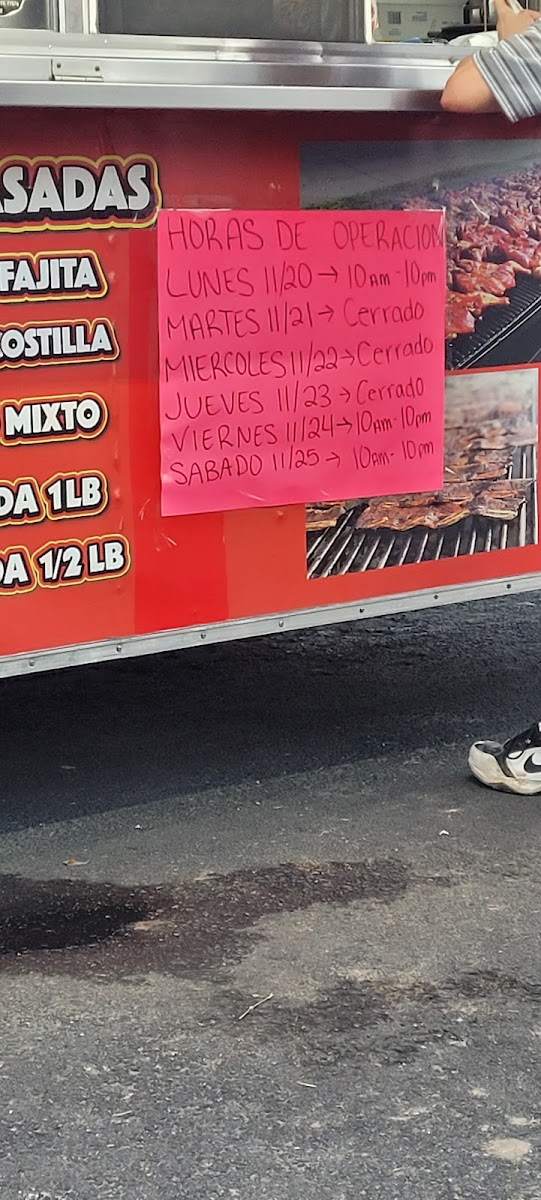 SADAS
FAJITA
COSTILLA
MIXTO
DA 1LB
DA 1/2 LB
HORAS DE OPERACION
LUNES 11/20 → 10AM - 10pm
MARTES 11/21 → Cerrado
MIERCOLES 11/22 → Cerrado
JUEVES 11/23 → Cerrado
VIERNES 11/24 → 10Am - 10pm
SABADO 11/25 → 10AM - 10pm